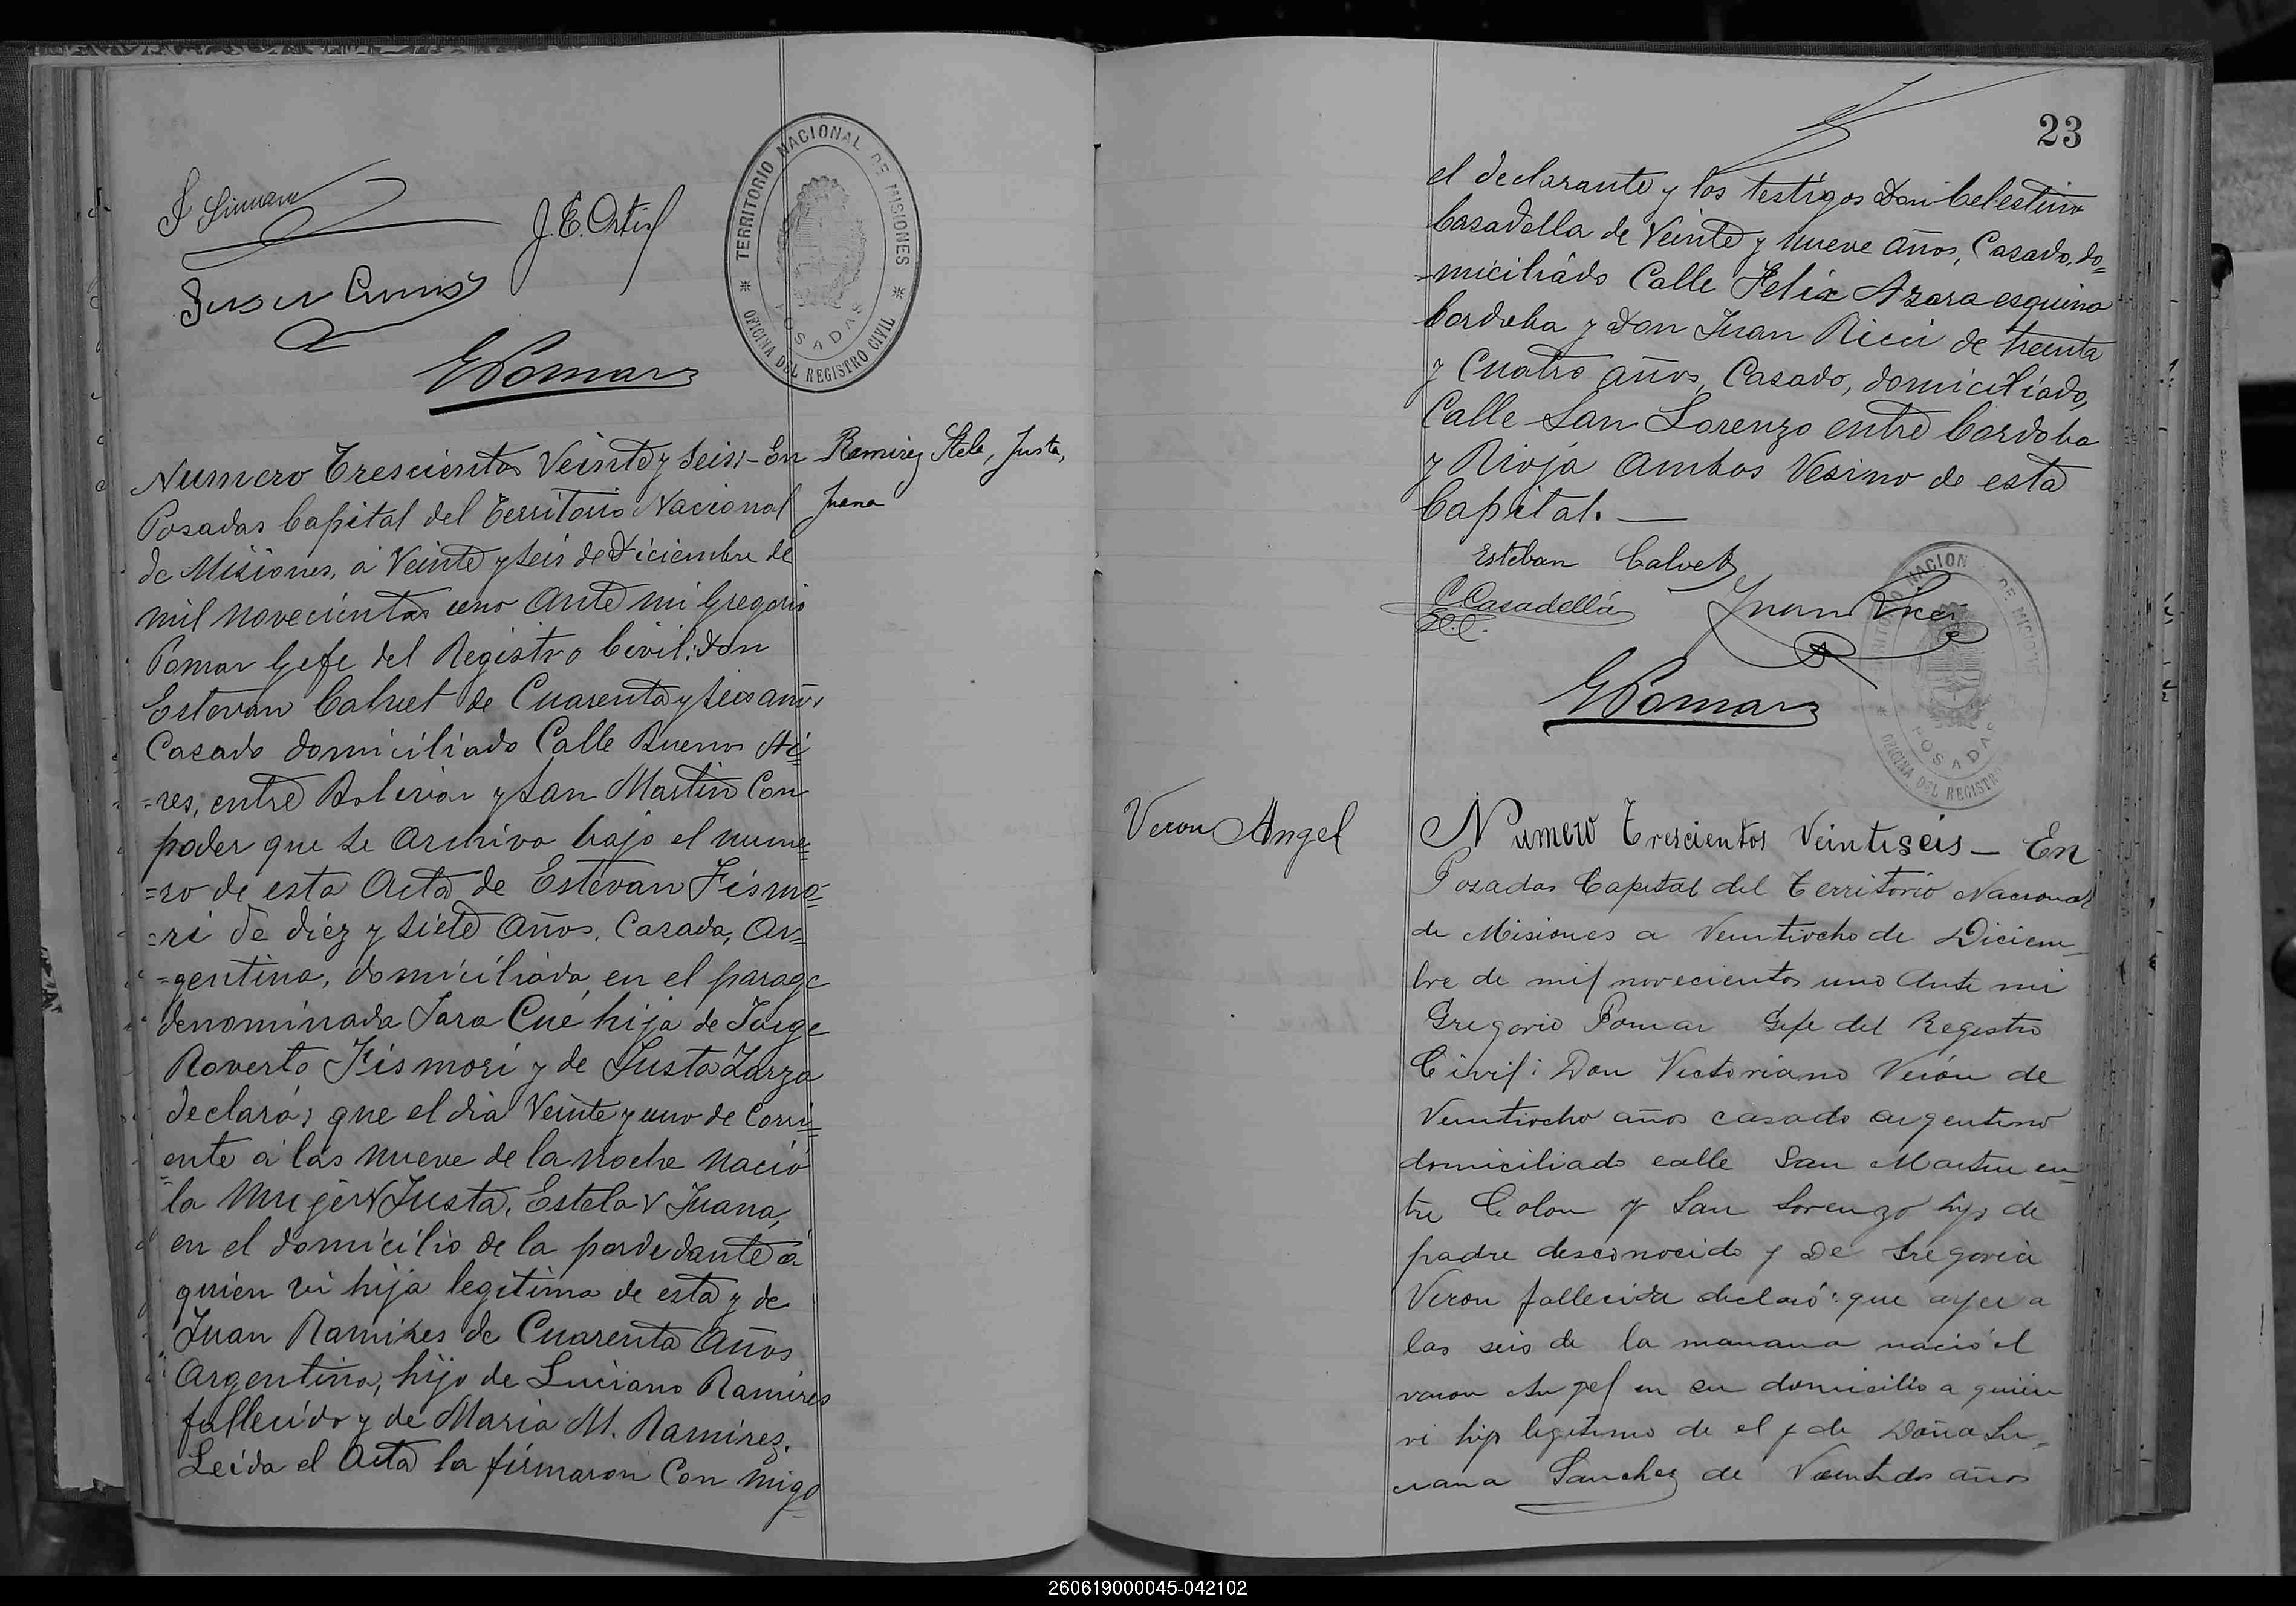 J. E. Ortiz
GPomar
TERRITORIO NACIONAL DE MISIONES
POSADAS
OFICINA DEL REGISTRO CIVIL
Ramirez Stela, Justa,
Juana
Numero Trescientos Veinte y Seis:- En
Posadas Capital del Territorio Nacional
de Misiones, á Veinte y seis de Diciembre de
mil novecientos uno Ante mi Gregorio
Pomar Gefe del Registro Civil: Don
Estevan Calvet de Cuarenta y seis años
Casado domiciliado Calle Buenos Ai=
=res, entre Bolivar y San Martin Con
poder que se archivo bajo el nume=
=ro de esta Acta de Estevan Fismo=
=ri de diez y siete Años, Casada, Ar=
=gentina, domiciliada en el parage
denominada Jara Cué hija de Jorge
Roverto Fismori y de Justa Zarza
declaró; que el dia Veinte y uno de Corri=
=ente á las nueve de la noche nació
la Mujer Justa, Estela Juana,
en el domicilio de la poderdante á
quien vi hija legitima de esta y de
Juan Ramires de Cuarenta Años
Argentino, hijo de Luciano Ramires
fallecido y de Maria M. Ramirez.
Leida el Acta la firmaron Con migo
23
el declarante y los testigos Don Celestino
Casadella de Veinte y nueve años, Casado, do=
=miciliado Calle Felix Azara esquina
Cordoba y Don Juan Ricci de treinta
y Cuatro años, Casado, domiciliado,
Calle San Lorenzo entre Cordoba
y Rioja Ambos Vesino de esta
Capital.
Esteban Calvet
C. Casadellá
Juan Ricci
GPomar
NACION DE MISIONE
POSADAS
OFICINA DEL REGISTR
Veron Angel
Numero Trescientos Veintiseis - En
Posadas Capital del Territorio Nacional
de Misiones a Veintiocho de Diciem-
bre de mil novecientos uno Ante mi
Gregorio Pomar Gefe del Registro
Civil: Don Victoriano Verón de
Veintiocho años casado argentino
domiciliado calle San Martin en-
tre Colon y San Lorenzo hijo de
padre desconocido y De Gregoria
Veron fallecida declaró: que ayer a
las seis de la manana nació el
varon Angel en su domicilio a quien
vi hijo legitimo de el y de Doña Lu-
ciana Sanchez de Veintidos años
260619000045-042102